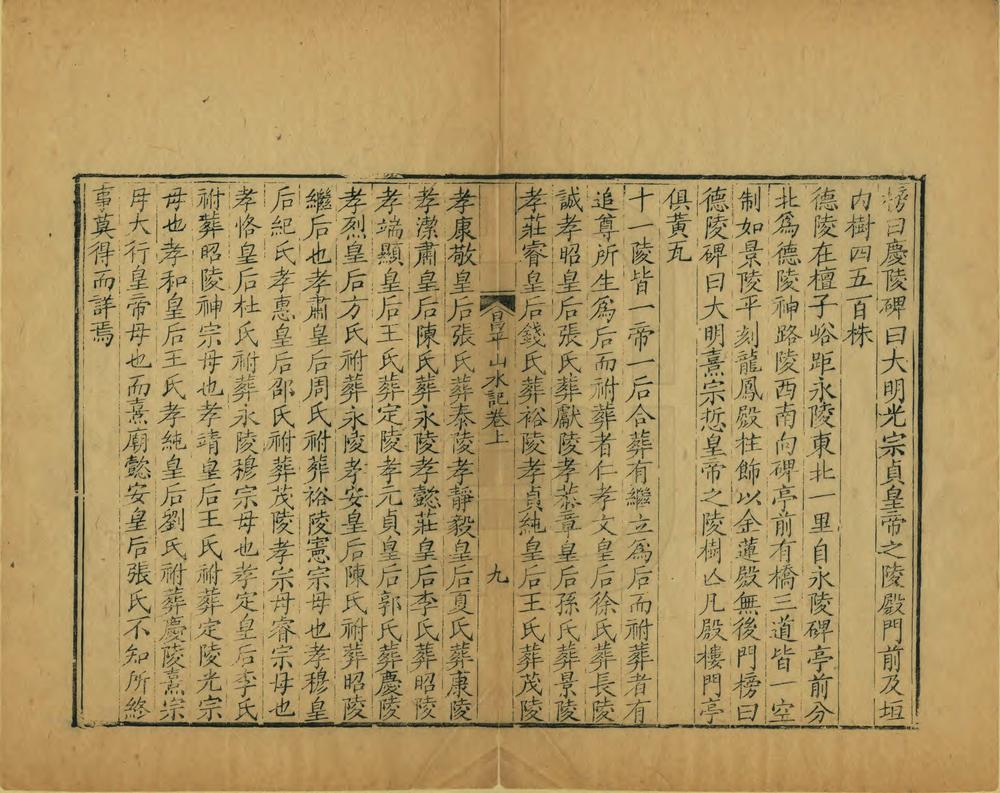 榜曰慶陵碑曰大明光宗貞皇帝之陵殿門前及垣
內樹四五百株
德陵在檀子峪距永陵東北一里自永陵碑亭前分
北爲德陵神路陵西南向碑亭前有橋三道皆一空
制如景陵平刻龍鳳殿柱飾以金蓮殿無後門榜曰
德陵碑曰大明熹宗悊皇帝之陵樹亾凡殿樓門亭
俱黃瓦
十一陵皆一帝一后合葬有繼立爲后而祔葬者有
追尊所生爲后而祔葬者仁孝文皇后徐氏葬長陵
誠孝昭皇后張氏葬獻陵孝恭章皇后孫氏葬景陵
孝莊睿皇后錢氏葬裕陵孝貞純皇后王氏葬茂陵
昌平山水記卷上
九
孝康敬皇后張氏葬泰陵孝靜毅皇后夏氏葬康陵
孝潔肅皇后陳氏葬永陵孝懿莊皇后李氏葬昭陵
孝端顯皇后王氏葬定陵孝元貞皇后郭氏葬慶陵
孝烈皇后方氏祔葬永陵孝安皇后陳氏祔葬昭陵
繼后也孝肅皇后周氏祔葬裕陵憲宗母也孝穆皇
后紀氏孝惠皇后邵氏祔葬茂陵孝宗母睿宗母也
孝恪皇后杜氏祔葬永陵穆宗母也孝定皇后李氏
祔葬昭陵神宗母也孝靖皇后王氏祔葬定陵光宗
母也孝和皇后王氏孝純皇后劉氏祔葬慶陵熹宗
母大行皇帝母也而熹廟懿安皇后張氏不知所終
事莫得而詳焉